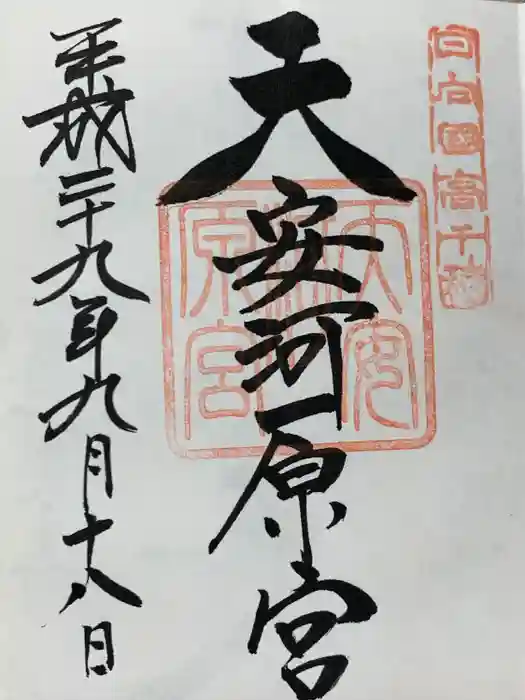 日向国高千穂
天安河原宮
天安河原宮
平成二十九年九月十八日